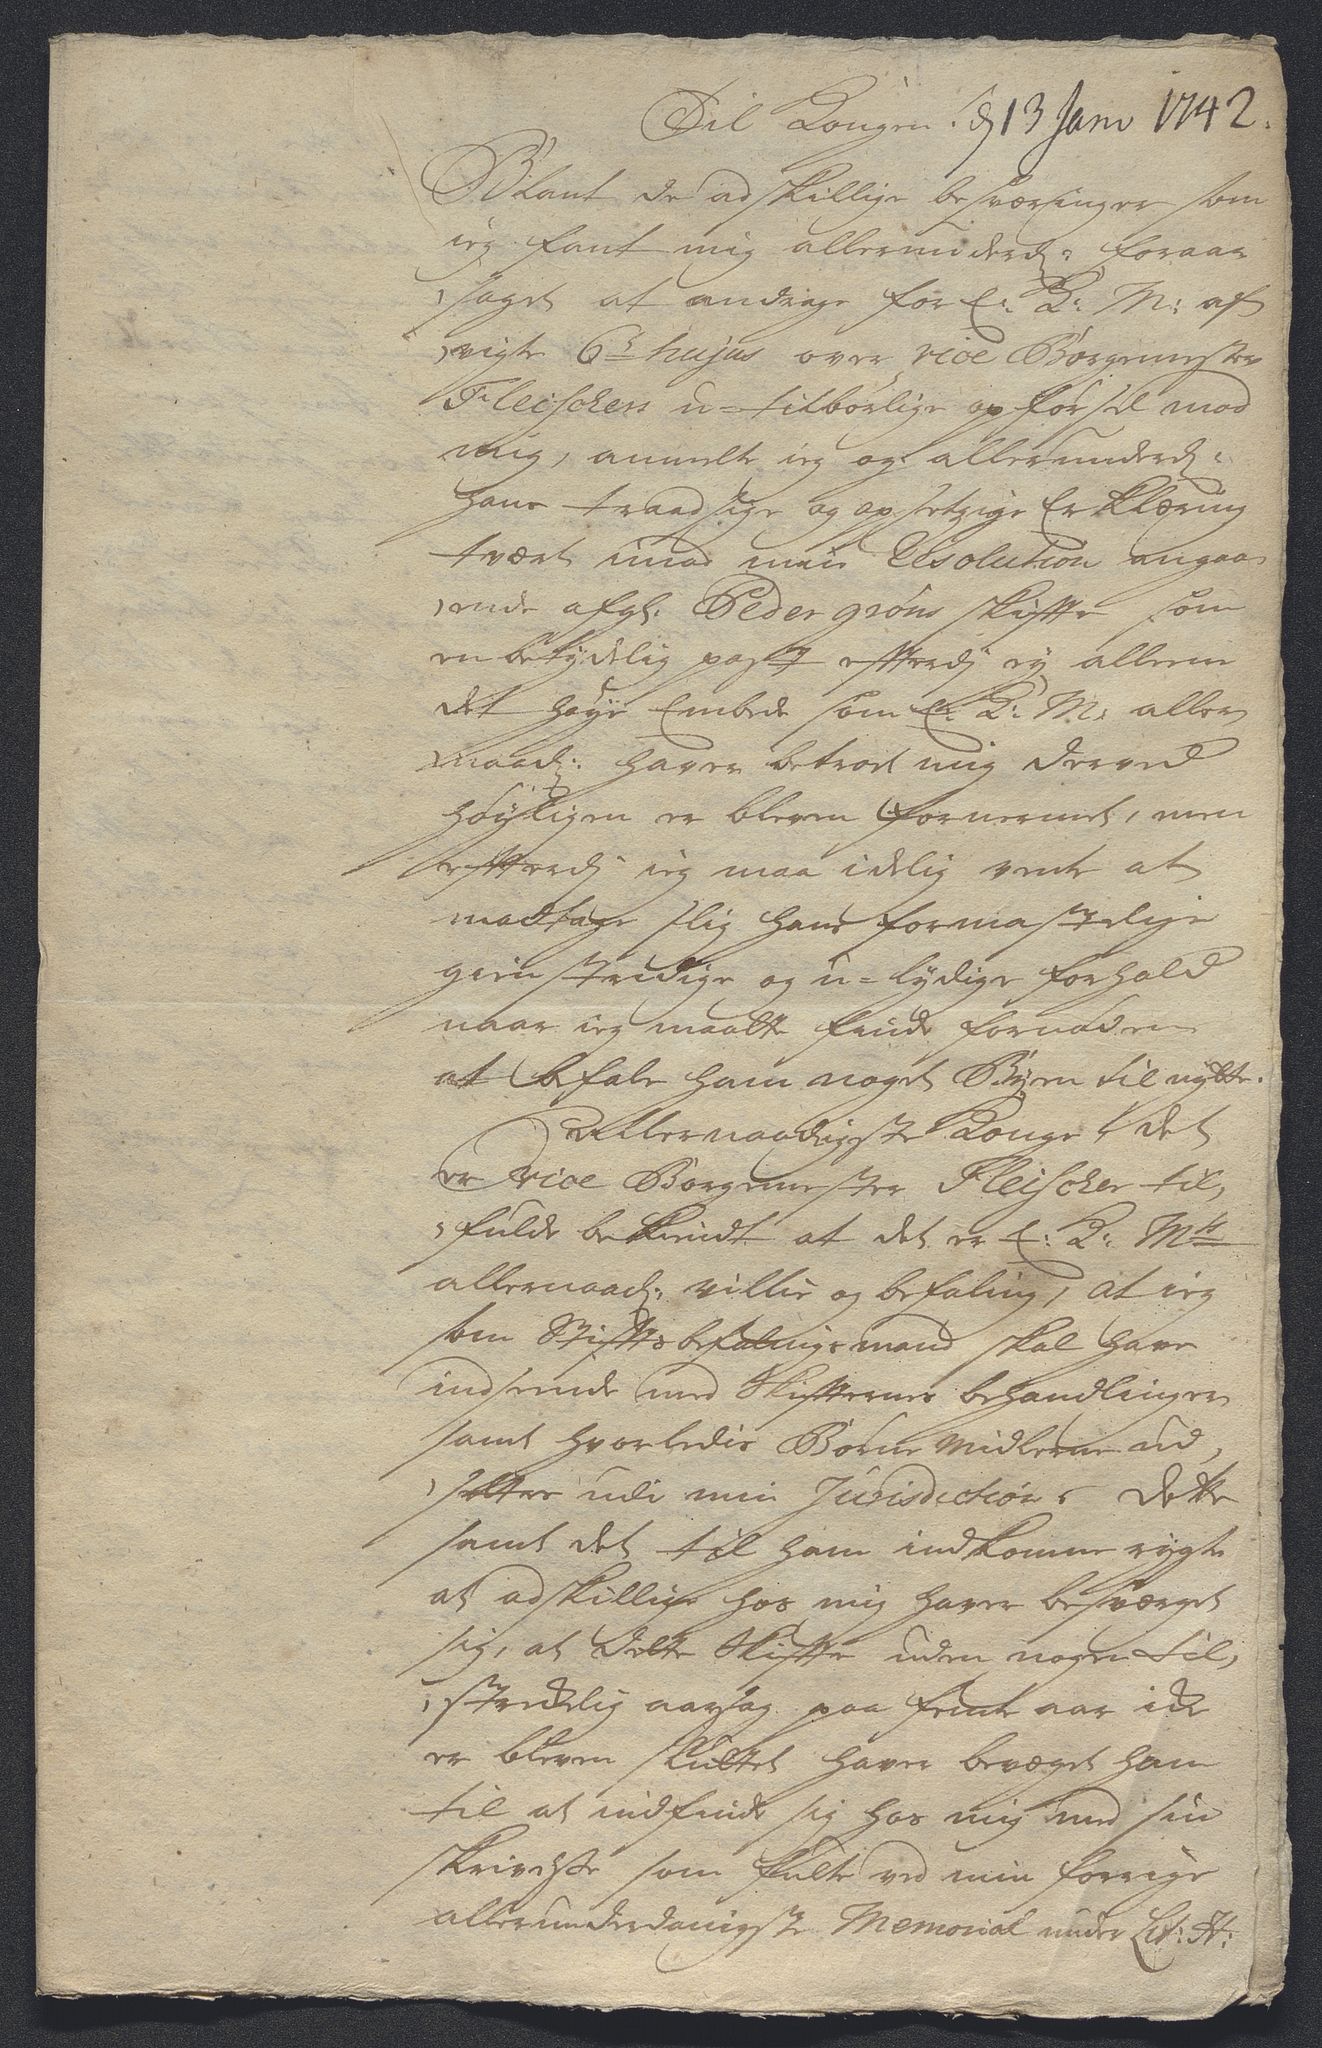 Til Kongen. d 13 Janv 1742.
Blant de adskillige besværinger som
ieg fant mig allerunderd: foraar
saget at andrage for E: K: M: af
vigte 6te hujus over vice Borgemester
Fleischers u-tilbørlige opførsel mod
mig, anmelte ieg og allerunderd:
hans traadsige og opsetzige Erklæring
tvært imod min Resolution angaa
ende afgl: Peder Grøns skifte som
en betydelig post efterdj ej alleene
det høye Embede som E: K: M: aller
naad: haver betroet mig derved
høyligen er bleven fornermet, men
efterdj ieg maa idelig vente at
modtage slig hans formastelige
gienstridige og u-lydige forhold
naar ieg maatte finde fornøden
at befale ham noget Byen til nytte.
Allernaadigste Konge! det
er vice Borgemester Fleischer til
fulde bekiendt at det er E: K: Mts
allernaad: villie og befaling, at ieg
som Stiftsbefalingsmand skal have
indseende med Skifternes behandlinger
samt hvorledis Børne Midlerne ud
settes udi min Jurisdiction. Dette
samt det til ham indkomne rygte
at adskillige hos mig haver besværget
sig, at dette Skifte uden nogen til
strekkelig aarsag paa femte aar ikke
er bleven sluttet haver bevæget ham
til at indfinde sig hos mig med sin
skrivelse som fulte ved min forrige
allerunderdanigste Memorial under Lit: A: